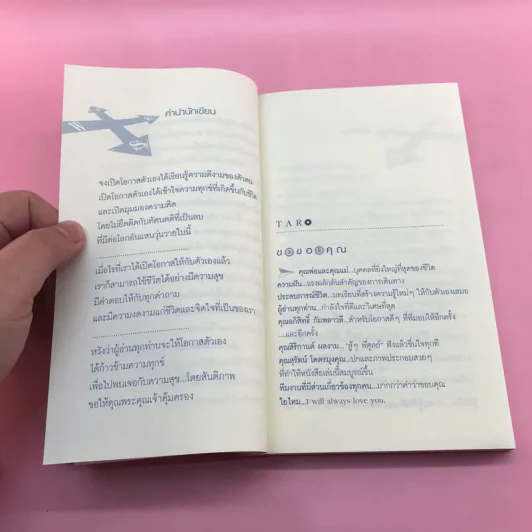 คำนำนักเขียน
จงเปิดโอกาสตัวเองได้เรียนรู้ความดีงามของตัวตน
เปิดโอกาสตัวเองได้เข้าใจความทุกข์ที่เกิดขึ้นกับชีวิต
และเปิดมุมมองความคิด
โดยไม่ยึดติดกับทัศนคติที่เป็นลบ
ที่มีต่อโลกอันแสนวุ่นวายใบนี้
เมื่อไรที่เราได้เปิดโอกาสให้กับตัวเองแล้ว
เราก็สามารถใช้ชีวิตได้อย่างมีความสุข
มีคำตอบให้กับทุกคำถาม
และมีความงดงามแก่ชีวิตและจิตใจที่เป็นของเรา
หวังว่าผู้อ่านทุกท่านจะให้โอกาสตัวเอง
ได้ก้าวข้ามความทุกข์
เพื่อไปพบเจอกับความสุข...โดยสันติภาพ
ขอให้คุณพระคุณเจ้าคุ้มครอง
TARO
ขอขอบคุณ
คุณพ่อและคุณแม่...บุคคลที่ยิ่งใหญ่ที่สุดของชีวิต
ความฝัน...แรงผลักดันสำคัญของการเดินทาง
ประสบการณ์ชีวิต...บทเรียนที่สร้างความรู้ใหม่ๆ ให้กับตัวเองเสมอ
ผู้อ่านทุกท่าน...กำลังใจที่ดีและวิเศษที่สุด
คุณอภิสิทธิ์ กัมพลาวลี...สำหรับโอกาสดีๆ ที่พี่มอบให้อีกครั้ง
...และอีกครั้ง
คุณสิริกานต์ ผลงาม...'สู้ๆ พี่ตูลย์' ฟังแล้วชื่นใจทุกที
คุณสุรัตน์ โคตรมุงคุณ...ปกและภาพประกอบสวยๆ
ที่ทำให้หนังสือเล่มนี้สมบูรณ์ขึ้น
ทีมงานที่มีส่วนเกี่ยวข้องทุกคน...มากกว่าคำว่าขอบคุณ
ใยไหม...I will always love you.